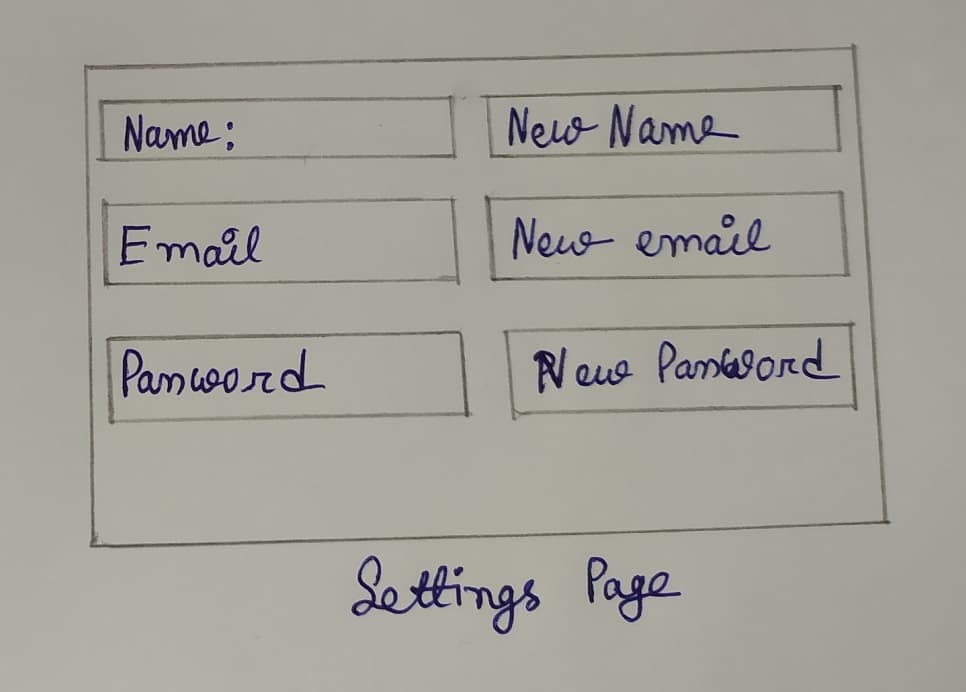 Name:
New Name
Email
New email
Password
New Password
Settings Page